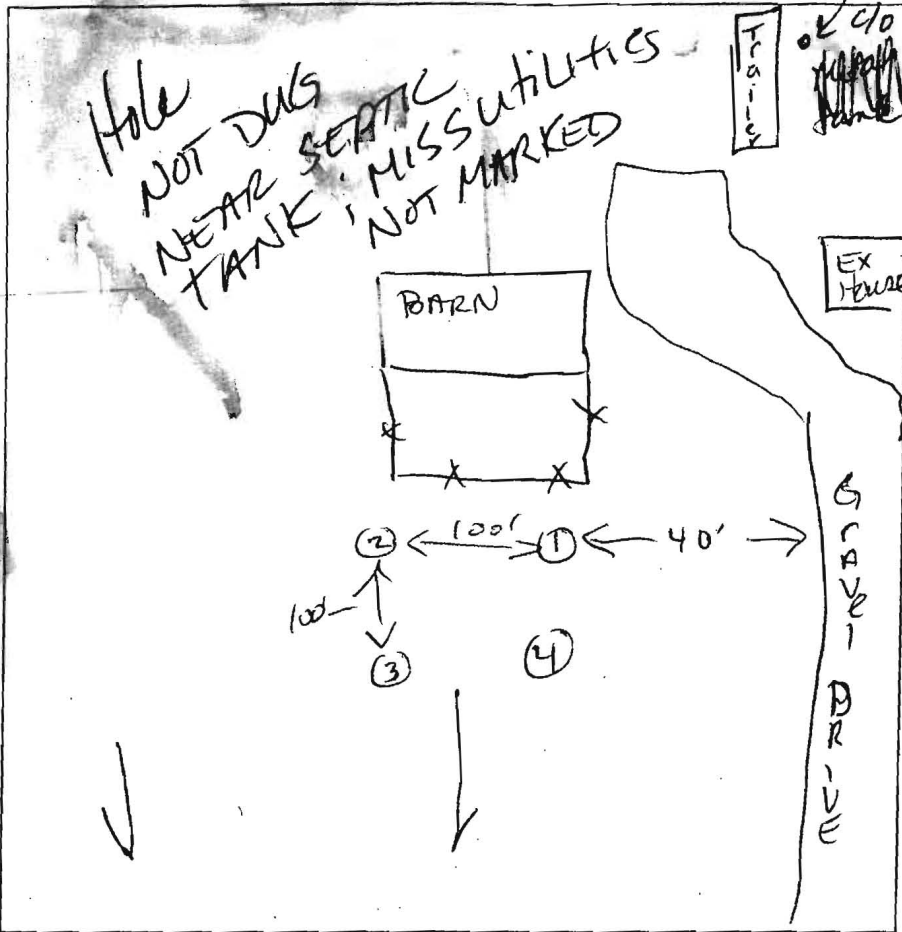 Hole
NOT DUG
NEAR SEPTIC
TANK; MISS UTILITIES
NOT MARKED
Trailer
c/o
EX
House
BARN
② 100' ① 40'
100'
③ ④
GRAVEl DRIVE